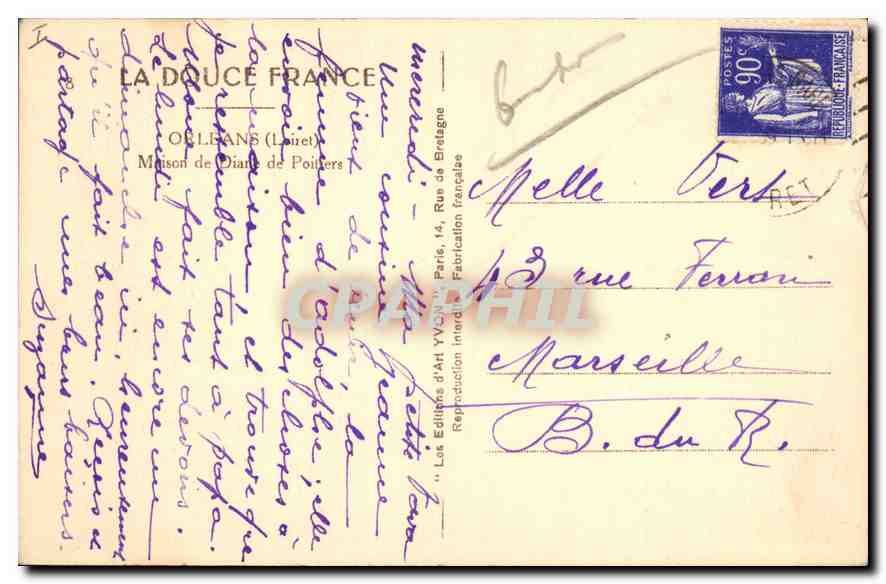 LA DOUCE FRANCE
ORLEANS (Loiret)
Maison de Diane de Poitiers
mercredi - Ma petite
Une cousine Jeanne
vient de la
femme d'adolphe, elle
envoie bien des choses à
la maison et trouve que
je ressemble tant à papa.
Nous fait ses devoirs.
Le lundi est encore un
dimanche ici, heureusement
qu'il fait beau. Reçois et
partage mes bons baisers.
Suzanne
"Les Editions d'Art YVON" Paris, 14, Rue de Bretagne
Reproduction interdite Fabrication française
POSTES
90c
REPUBLIQUE FRANÇAISE
RET
Melle Vers
43 rue Ferrari
Marseille
B. du R.
CPAPHIL